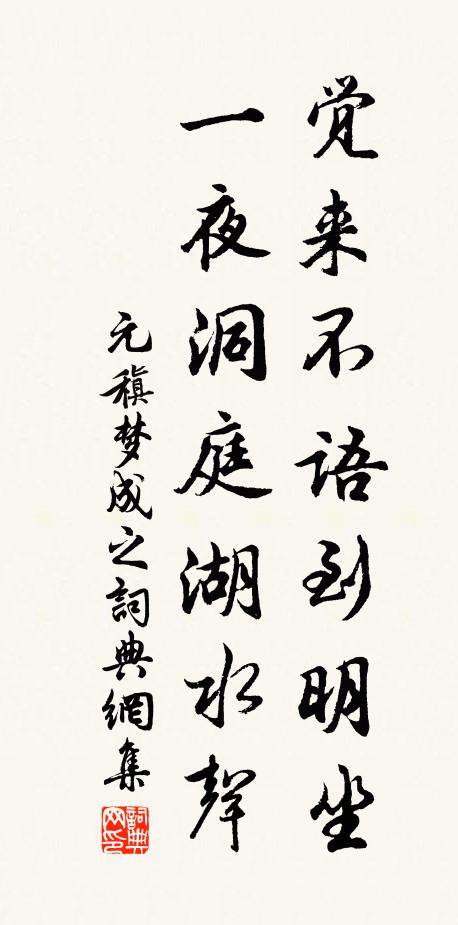 觉来不语到明坐
一夜洞庭湖水聲
元稹梦成之詞典網集
詞典网印